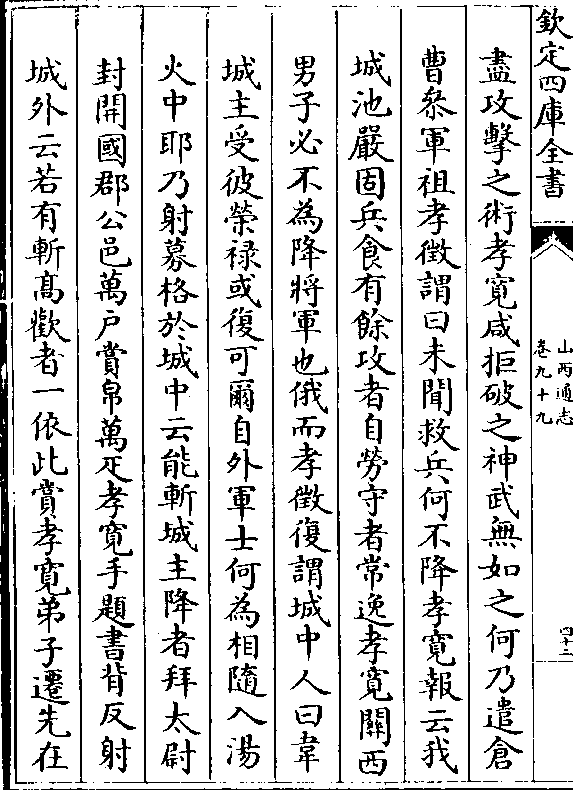 欽定四庫全書
山西通志
卷九十九
四十二
盡攻擊之術孝寛咸拒破之神武無如之何乃遣倉
曹叅軍祖孝徴謂曰未聞救兵何不降孝寛報云我
城池嚴固兵食有餘攻者自勞守者常逸孝寛關西
男子必不為降將軍也俄而孝徴復謂城中人曰韋
城主受彼榮禄或復可爾自外軍士何為相隨入湯
火中耶乃射募格於城中云能斬城主降者拜太尉
封開國郡公邑萬戸賞帛萬疋孝寛手題書背反射
城外云若有斬髙歡者一依此賞孝寛弟子遷先在